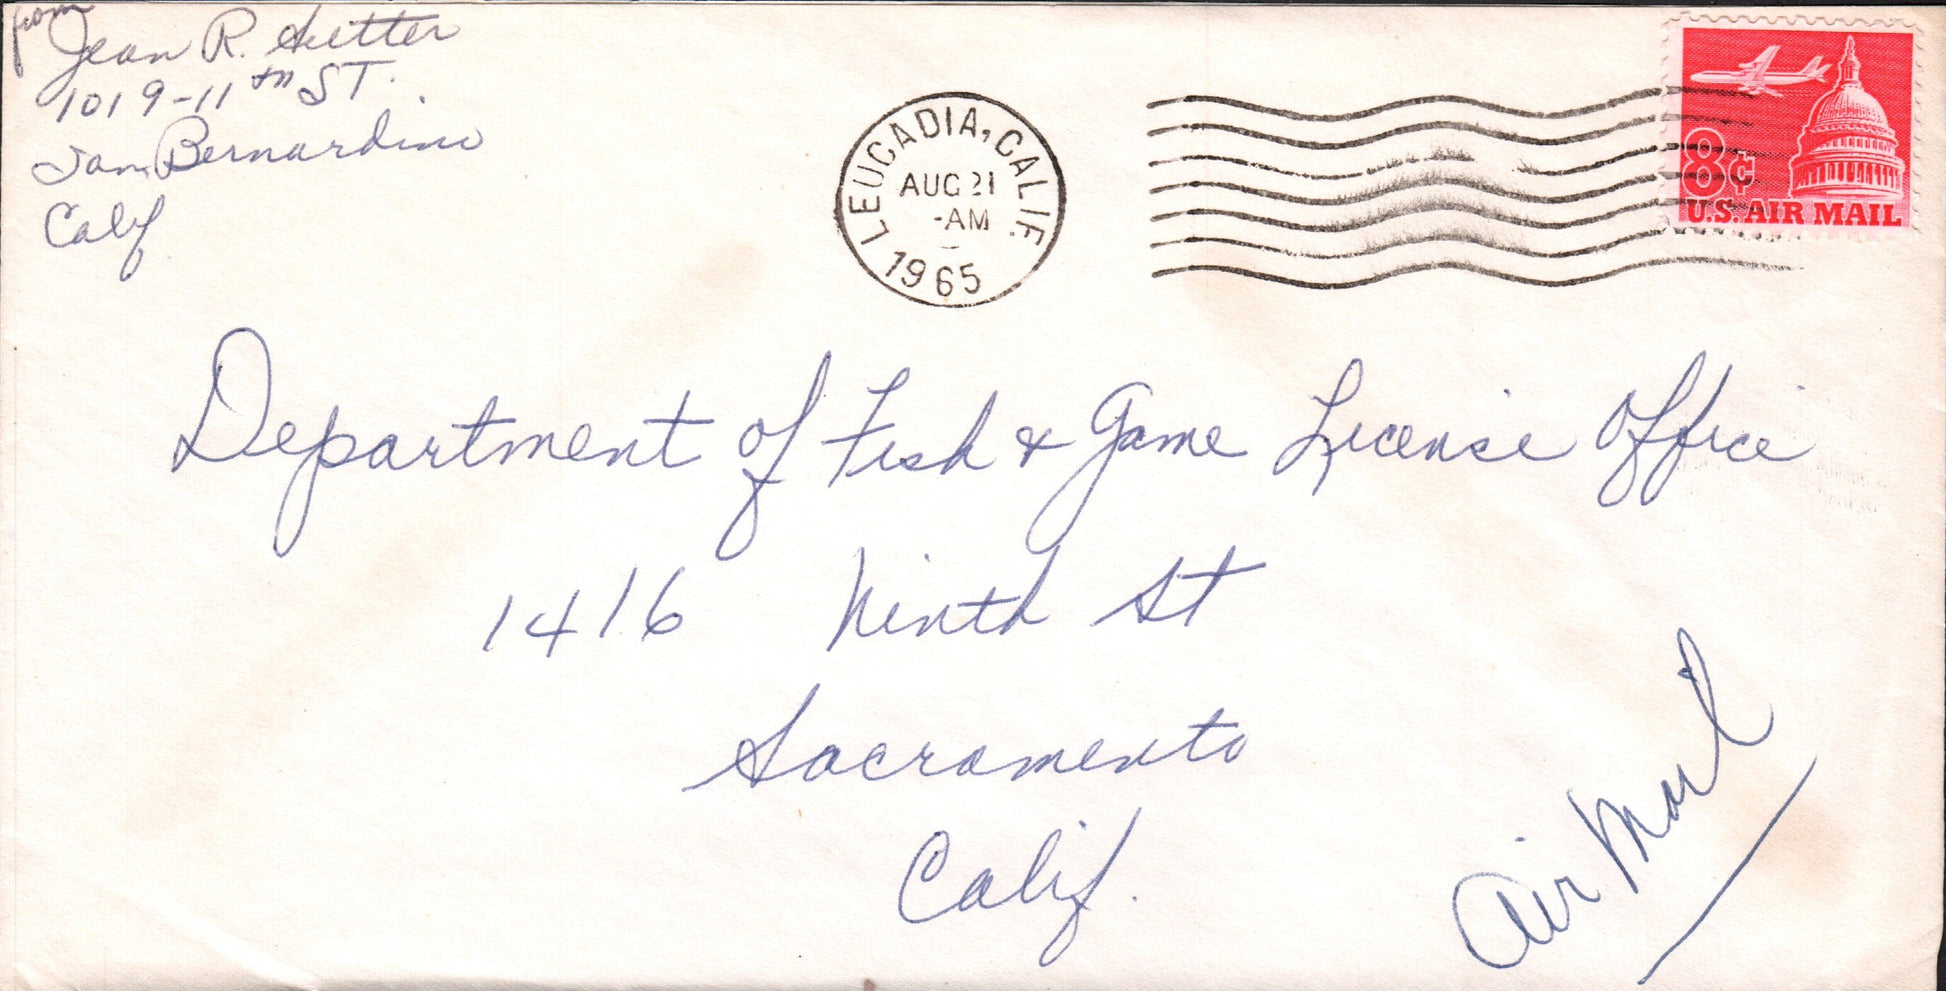 from
Jean R. Sutter
1019-11th ST.
San Bernardino
Calif
LEUCADIA, CALIF.
AUG 21
-AM
1965
8¢
U.S. AIR MAIL
Department of Fish & Game License Office
1416 Ninth St
Sacramento
Calif.
Air Mail